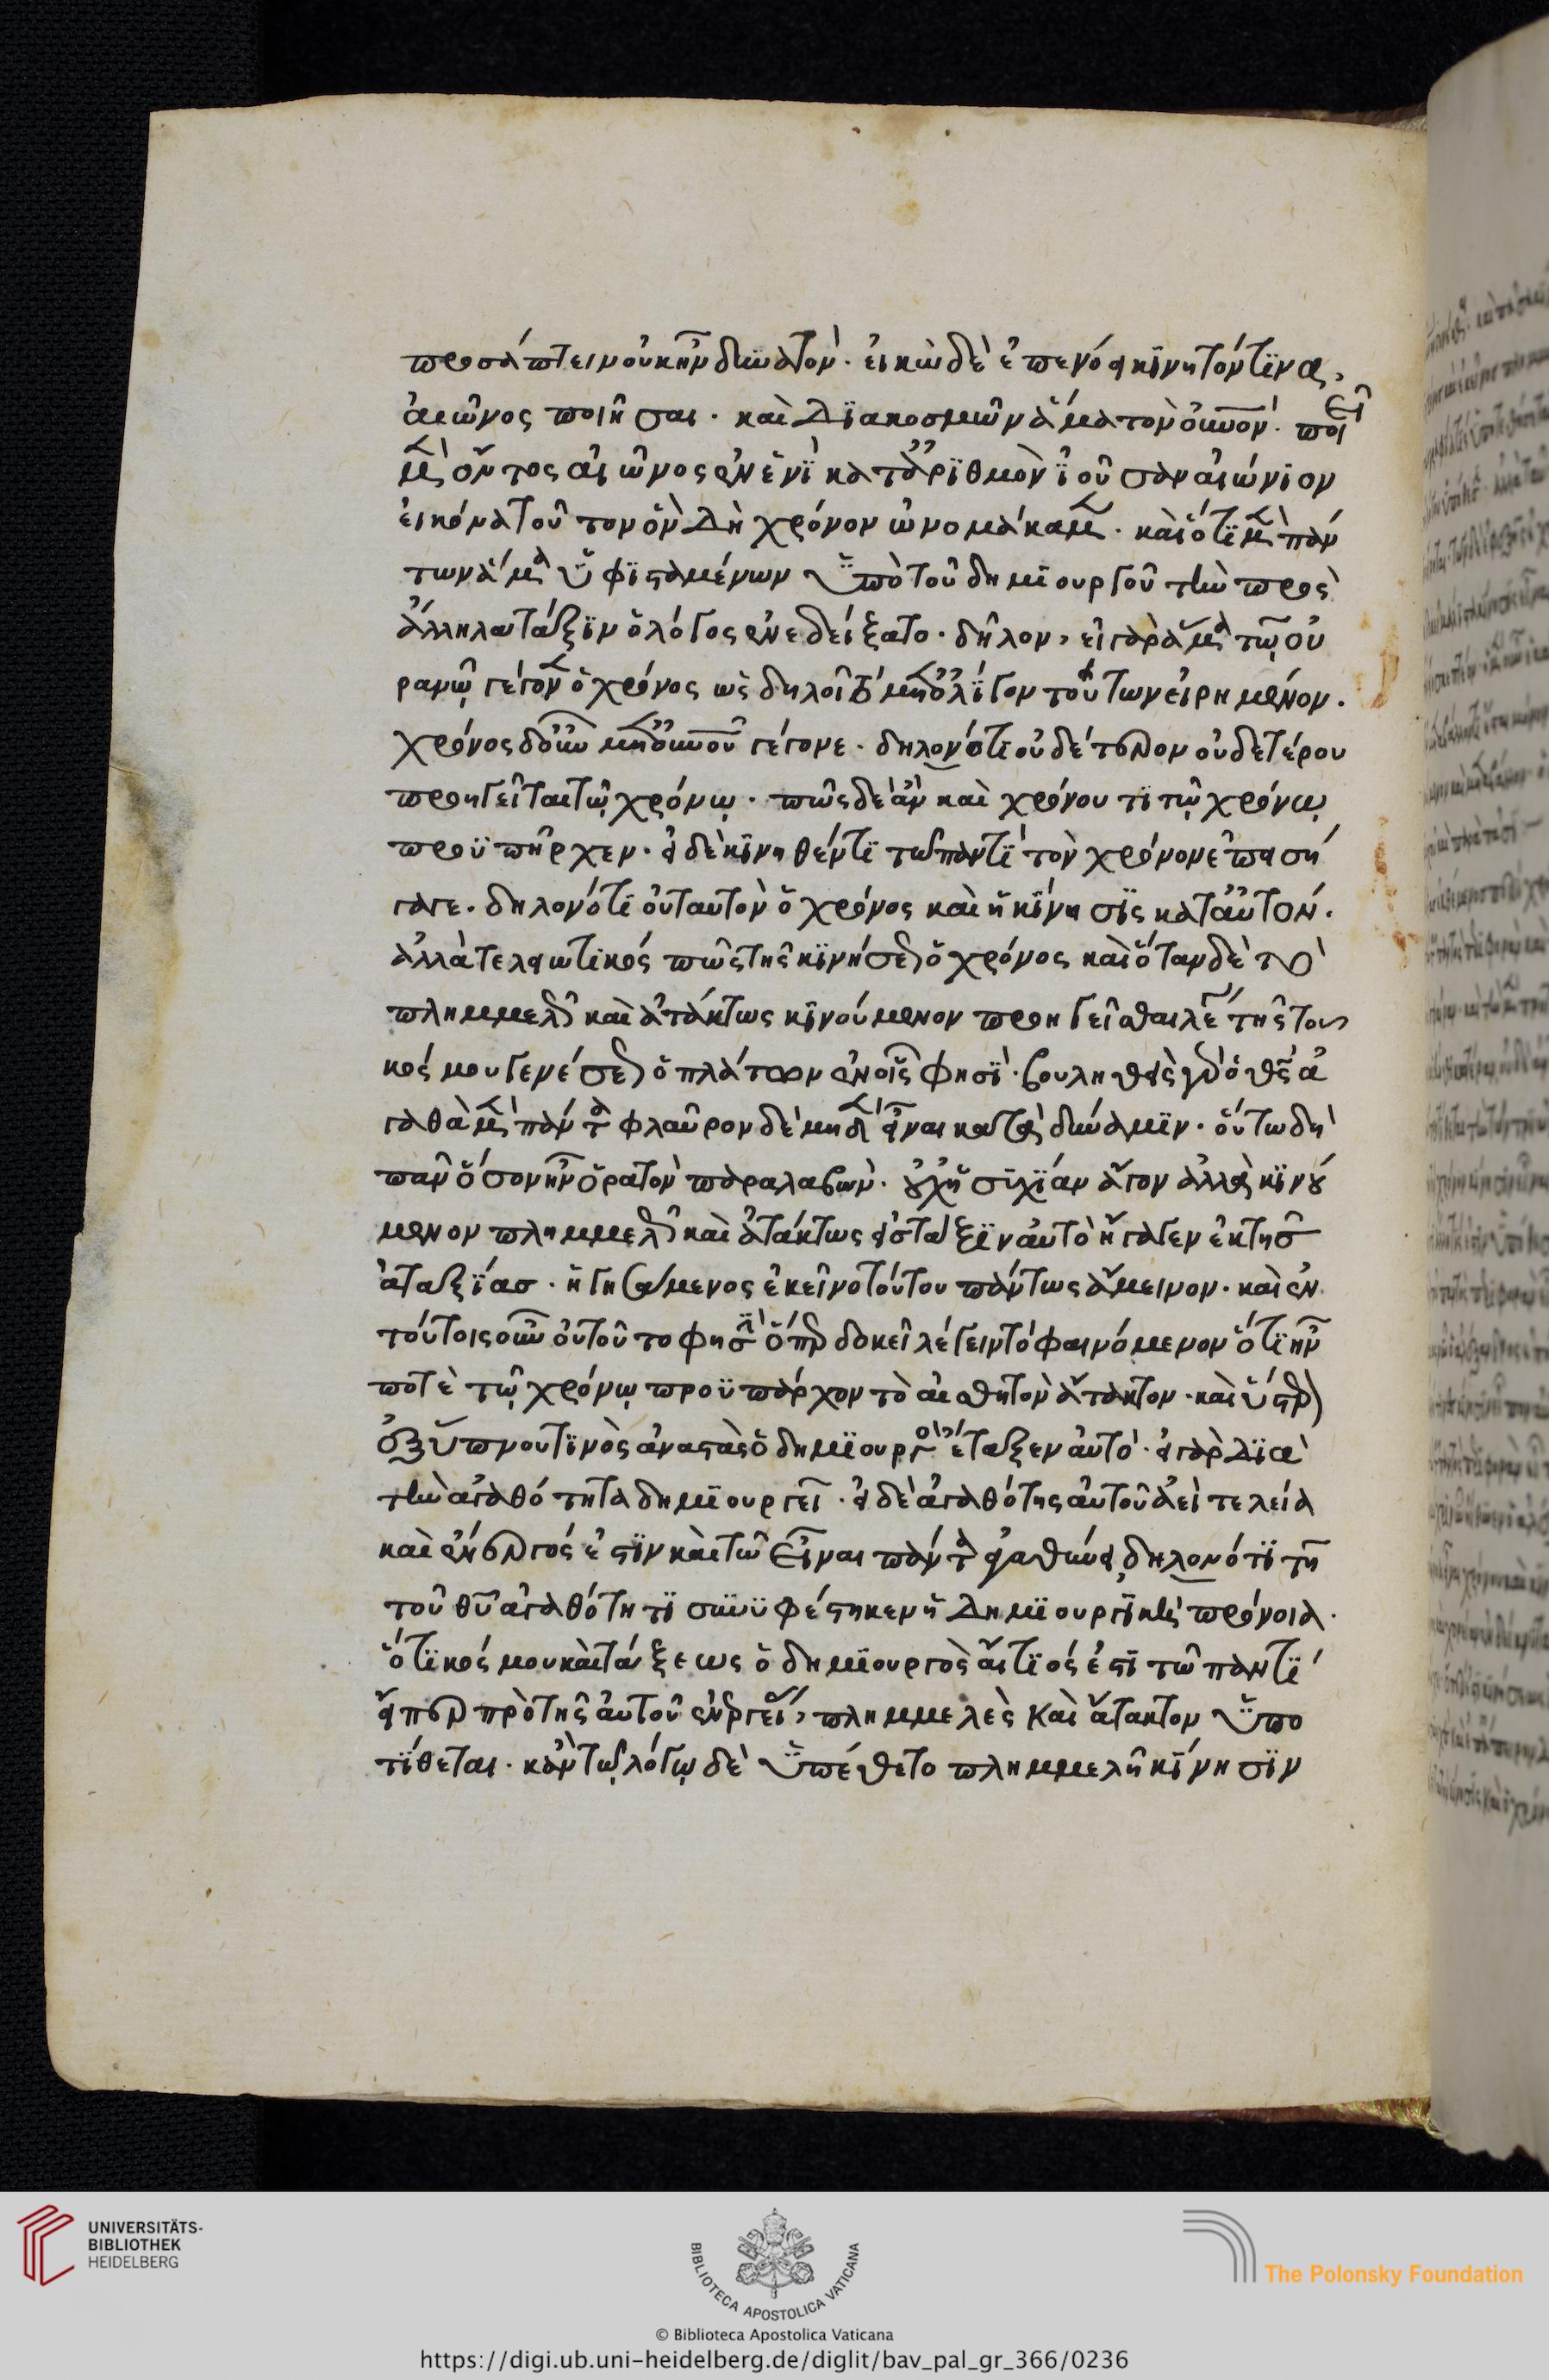 προσάπτειν οὐκ ἦν δυνατὸν· εἰκὼ δὲ ἐπενόει κινητόν τινα,
αἰῶνος ποιῆσαι· καὶ διακοσμῶν ἅμα τὸν οὐνὸν· ποιεῖ
μὲν ὄντος αἰῶνος ἐν ἑνὶ κατ' ἀριθμὸν ἰοῦσαν αἰώνιον
εἰκόνα τοῦτον ὃν δὴ χρόνον ὠνομάκαμεν· καὶ ὅτι μὲν πάν
των ἅμα ὑφισταμένων ὑπὸ τοῦ δημιουργοῦ τὴν πρὸς
ἄλληλα τάξιν ὁ λόγος ἐνεδείξατο· δῆλον, εἰ γὰρ ἅμα τῷ οὐ
ρανῷ γέγονεν ὁ χρόνος ὡς δηλοῖ τὸ μετ' ὀλίγον τούτων εἰρημένον·
χρόνος δ' οὖν μετ' οὐνοῦ γέγονε· δηλονότι οὐδέτερον οὐδετέρου
προηγεῖται τῷ χρόνῳ· πῶς δὲ ἂν καὶ χρόνου τι τῷ χρόνῳ
προϋπῆρχεν· εἰ δὲ κινηθέντι τῷ παντὶ τὸν χρόνον ἐπεισή
γαγε· δηλονότι οὐ ταυτὸν ὁ χρόνος καὶ ἡ κίνησις κατ' αὐτόν·
ἀλλὰ τελειωτικός πως τῆς κινήσεως ὁ χρόνος καὶ ὅταν δὲ τὸ
πλημμελῶς καὶ ἀτάκτως κινούμενον προηγεῖσθαι λέγῃ τῆς τοῦ
κόσμου γενέσεως ὁ πλάτων ἐν οἷς φησὶ· βουληθεὶς γὰρ ὁ θς ἀ
γαθὰ μὲν πάντα φλαῦρον δὲ μηδὲν εἶναι κατὰ δύναμιν· οὕτω δὴ
πᾶν ὅσον ἦν ὁρατὸν παραλαβὼν· οὐχ ἡσυχίαν ἄγον ἀλλὰ κινού
μενον πλημμελῶς καὶ ἀτάκτως εἰς τάξιν αὐτὸ ἤγαγεν ἐκ τῆς
ἀταξίας· ἡγησάμενος ἐκεῖνο τούτου πάντως ἄμεινον· καὶ ἐν
τούτοις οὖν οὐ τοῦτο φησὶν ὅπερ δοκεῖ λέγειν τὸ φαινόμενον ὅτι ἦν
ποτὲ τῷ χρόνῳ προϋπάρχον τὸ αἰσθητὸν ἄτακτον· καὶ ὕστερον
ἐξ ὕπνου τινὸς ἀναστὰς ὁ δημιουργὸς ἔταξεν αὐτὸ· εἰ γὰρ διὰ
τὴν ἀγαθότητα δημιουργεῖ· εἰ δὲ ἀγαθότης αὐτοῦ ἀεὶ τελεία
καὶ ἐνεργός ἐστιν καὶ τῷ εἶναι πάντα ἀγαθύνει, δηλονότι τῇ
τοῦ θῦ ἀγαθότητι συνυφέστηκεν ἡ δημιουργικὴ πρόνοια·
ὅτι κόσμου καὶ τάξεως ὁ δημιουργὸς αἴτιός ἐστι τῷ παντὶ
εἴπερ πρὸ τῆς αὐτοῦ ἐνεργείας, πλημμελὲς καὶ ἄτακτον ὑπο
τίθεται· κἂν τῷ λόγῳ δὲ ὑπέθετο πλημμελῆ κίνησιν
UNIVERSITÄTS-
BIBLIOTHEK
HEIDELBERG
BIBLIOTECA APOSTOLICA VATICANA
The Polonsky Foundation
© Biblioteca Apostolica Vaticana
https://digi.ub.uni-heidelberg.de/diglit/bav_pal_gr_366/0236